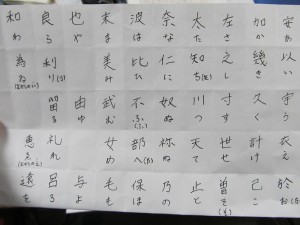 和 良 也 末 波 奈 太 左 加 安
わ ら や ま は な た さ か あ
為 利 美 比 仁 知 之 幾 以
ゐ り み ひ に ち し き い
留 由 武 不 奴 川 寸 久 宇
る ゆ む ふ ぬ つ す く う
恵 礼 女 部 祢 天 世 計 衣
ゑ れ め へ ね て せ け え
遠 呂 与 毛 保 乃 止 曽 己 於
を ろ よ も ほ の と そ こ お